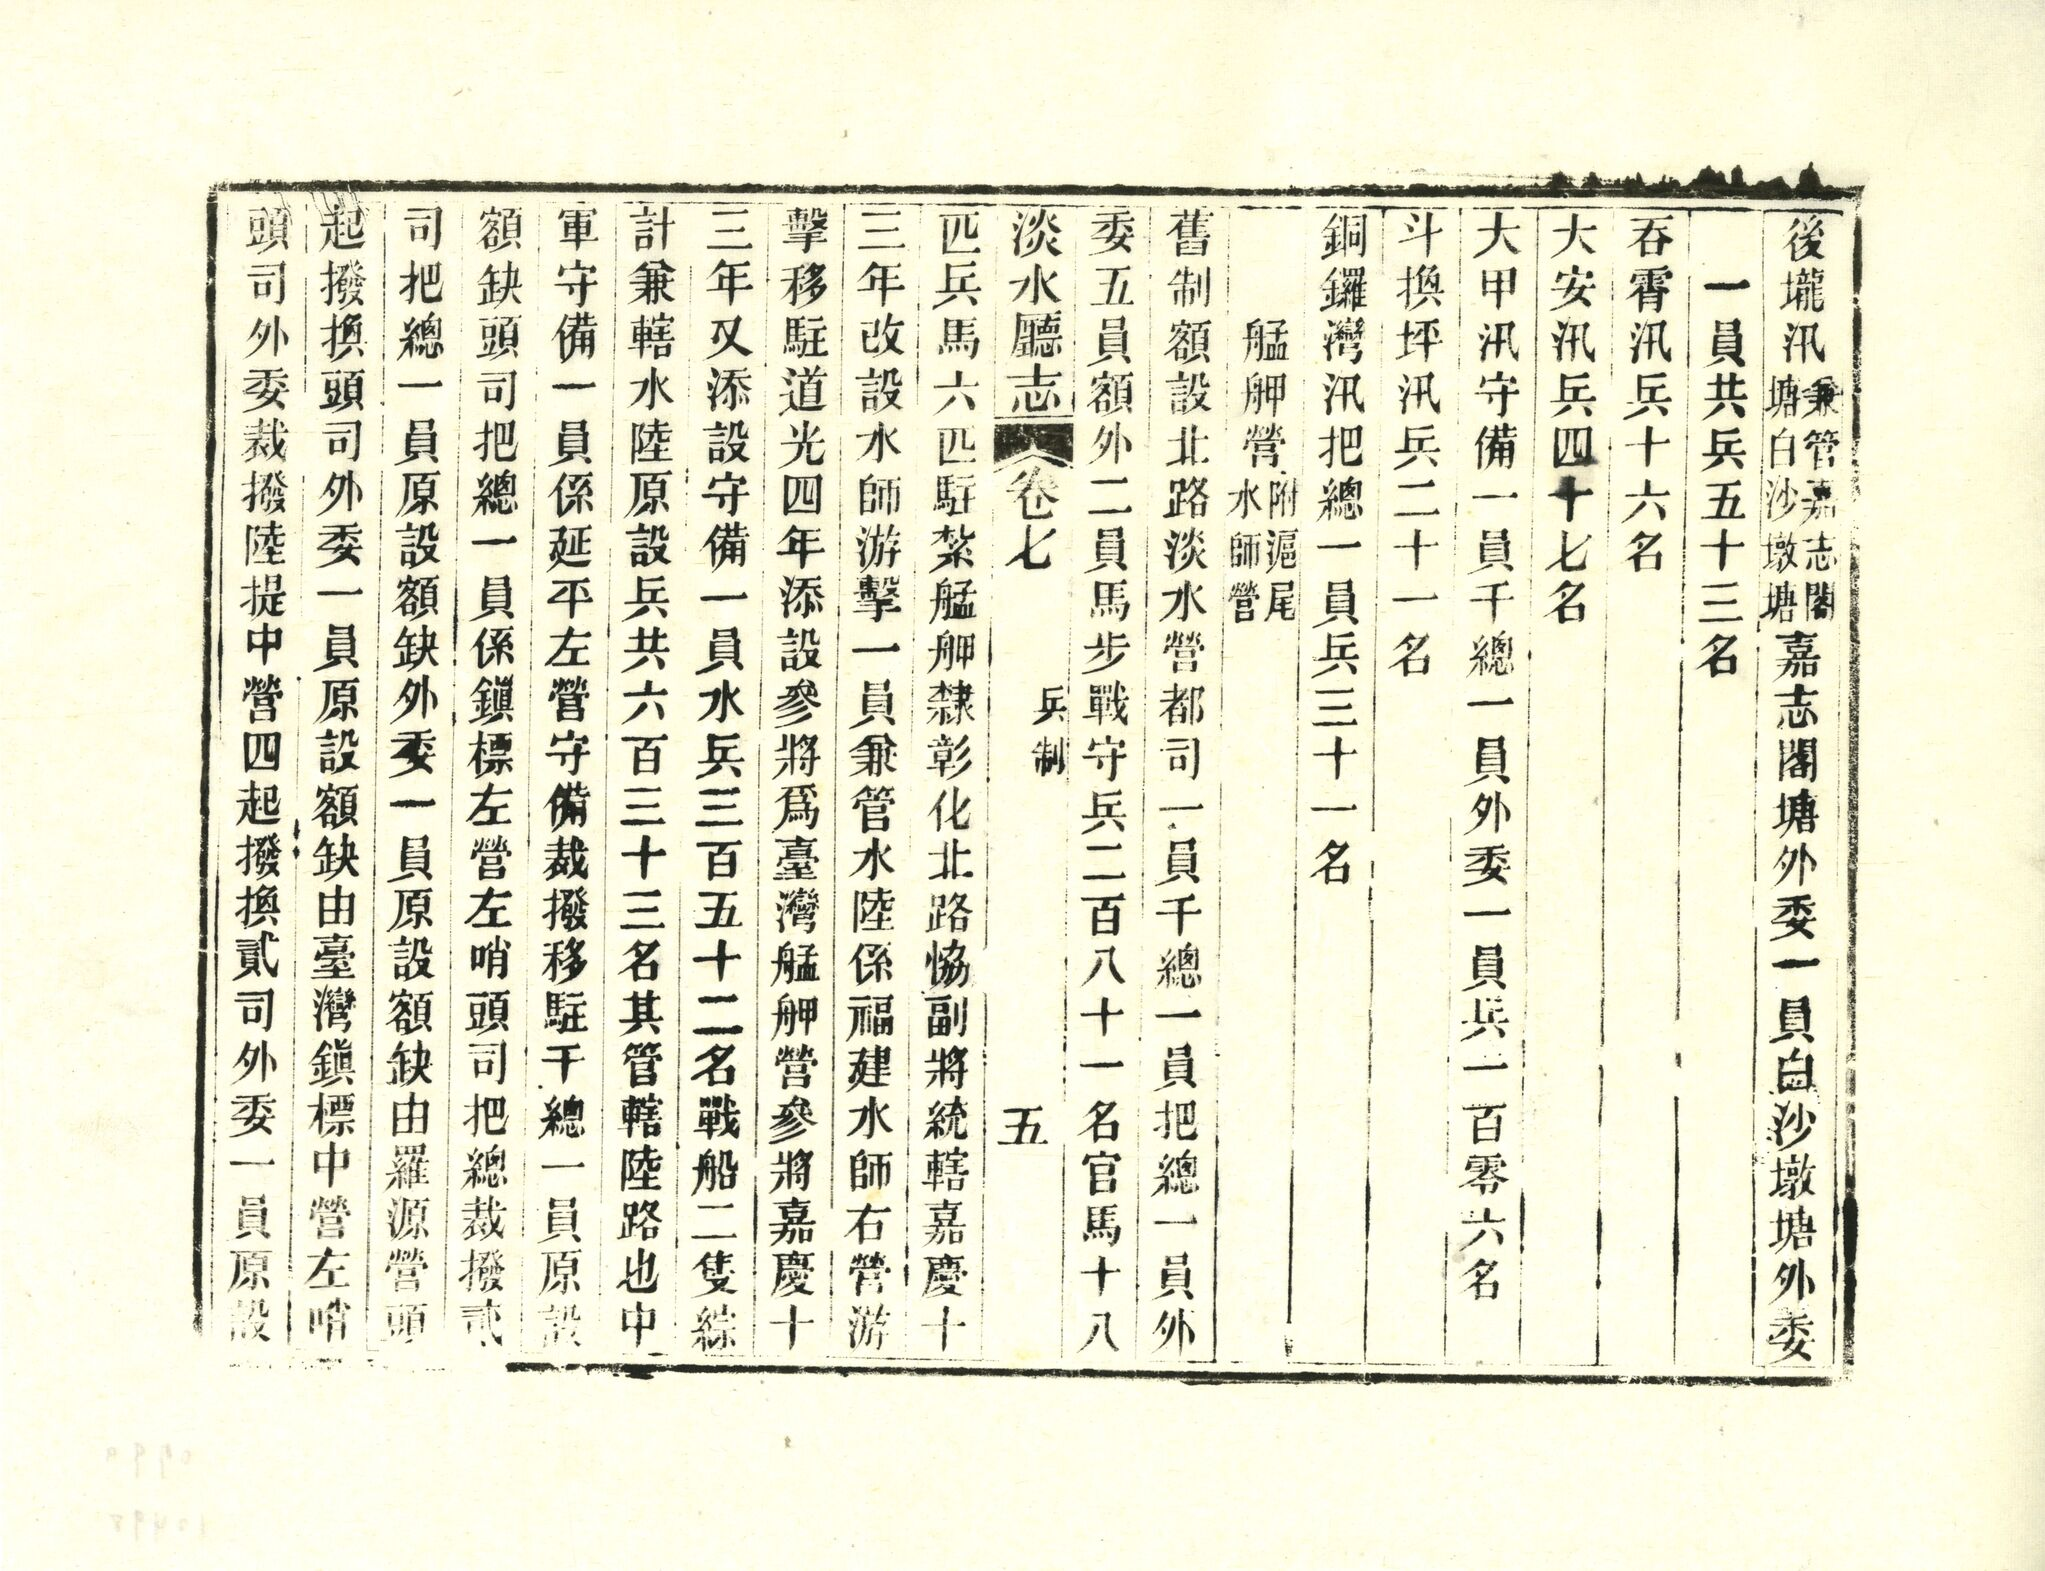 後壠汛兼管嘉志閣塘白沙墩塘嘉志閣塘外委一員白沙墩塘外委
一員共兵五十三名
吞霄汛兵十六名
大安汛兵四十七名
大甲汛守備一員千總一員外委一員兵一百零六名
斗換坪汛兵二十一名
銅鑼灣汛把總一員兵三十一名
艋舺營附滬尾水師營
舊制額設北路淡水營都司一員千總一員把總一員外
委五員額外二員馬步戰守兵二百八十一名官馬十八
淡水廳志 卷七 兵制 五
匹兵馬六匹駐紮艋舺隸彰化北路恊副將統轄嘉慶十
三年改設水師游擊一員兼管水陸係福建水師右營游
擊移駐道光四年添設參將爲臺灣艋舺營參將嘉慶十
三年又添設守備一員水兵三百五十二名戰船二隻綜
計兼轄水陸原設兵共六百三十三名其管轄陸路也中
軍守備一員係延平左營守備裁撥移駐千總一員原設
額缺頭司把總一員係鎮標左營左哨頭司把總裁撥貳
司把總一員原設額缺外委一員原設額缺由羅源營頭
起撥換頭司外委一員原設額缺由臺灣鎮標中營左哨
頭司外委裁撥陸提中營四起撥換貳司外委一員原設